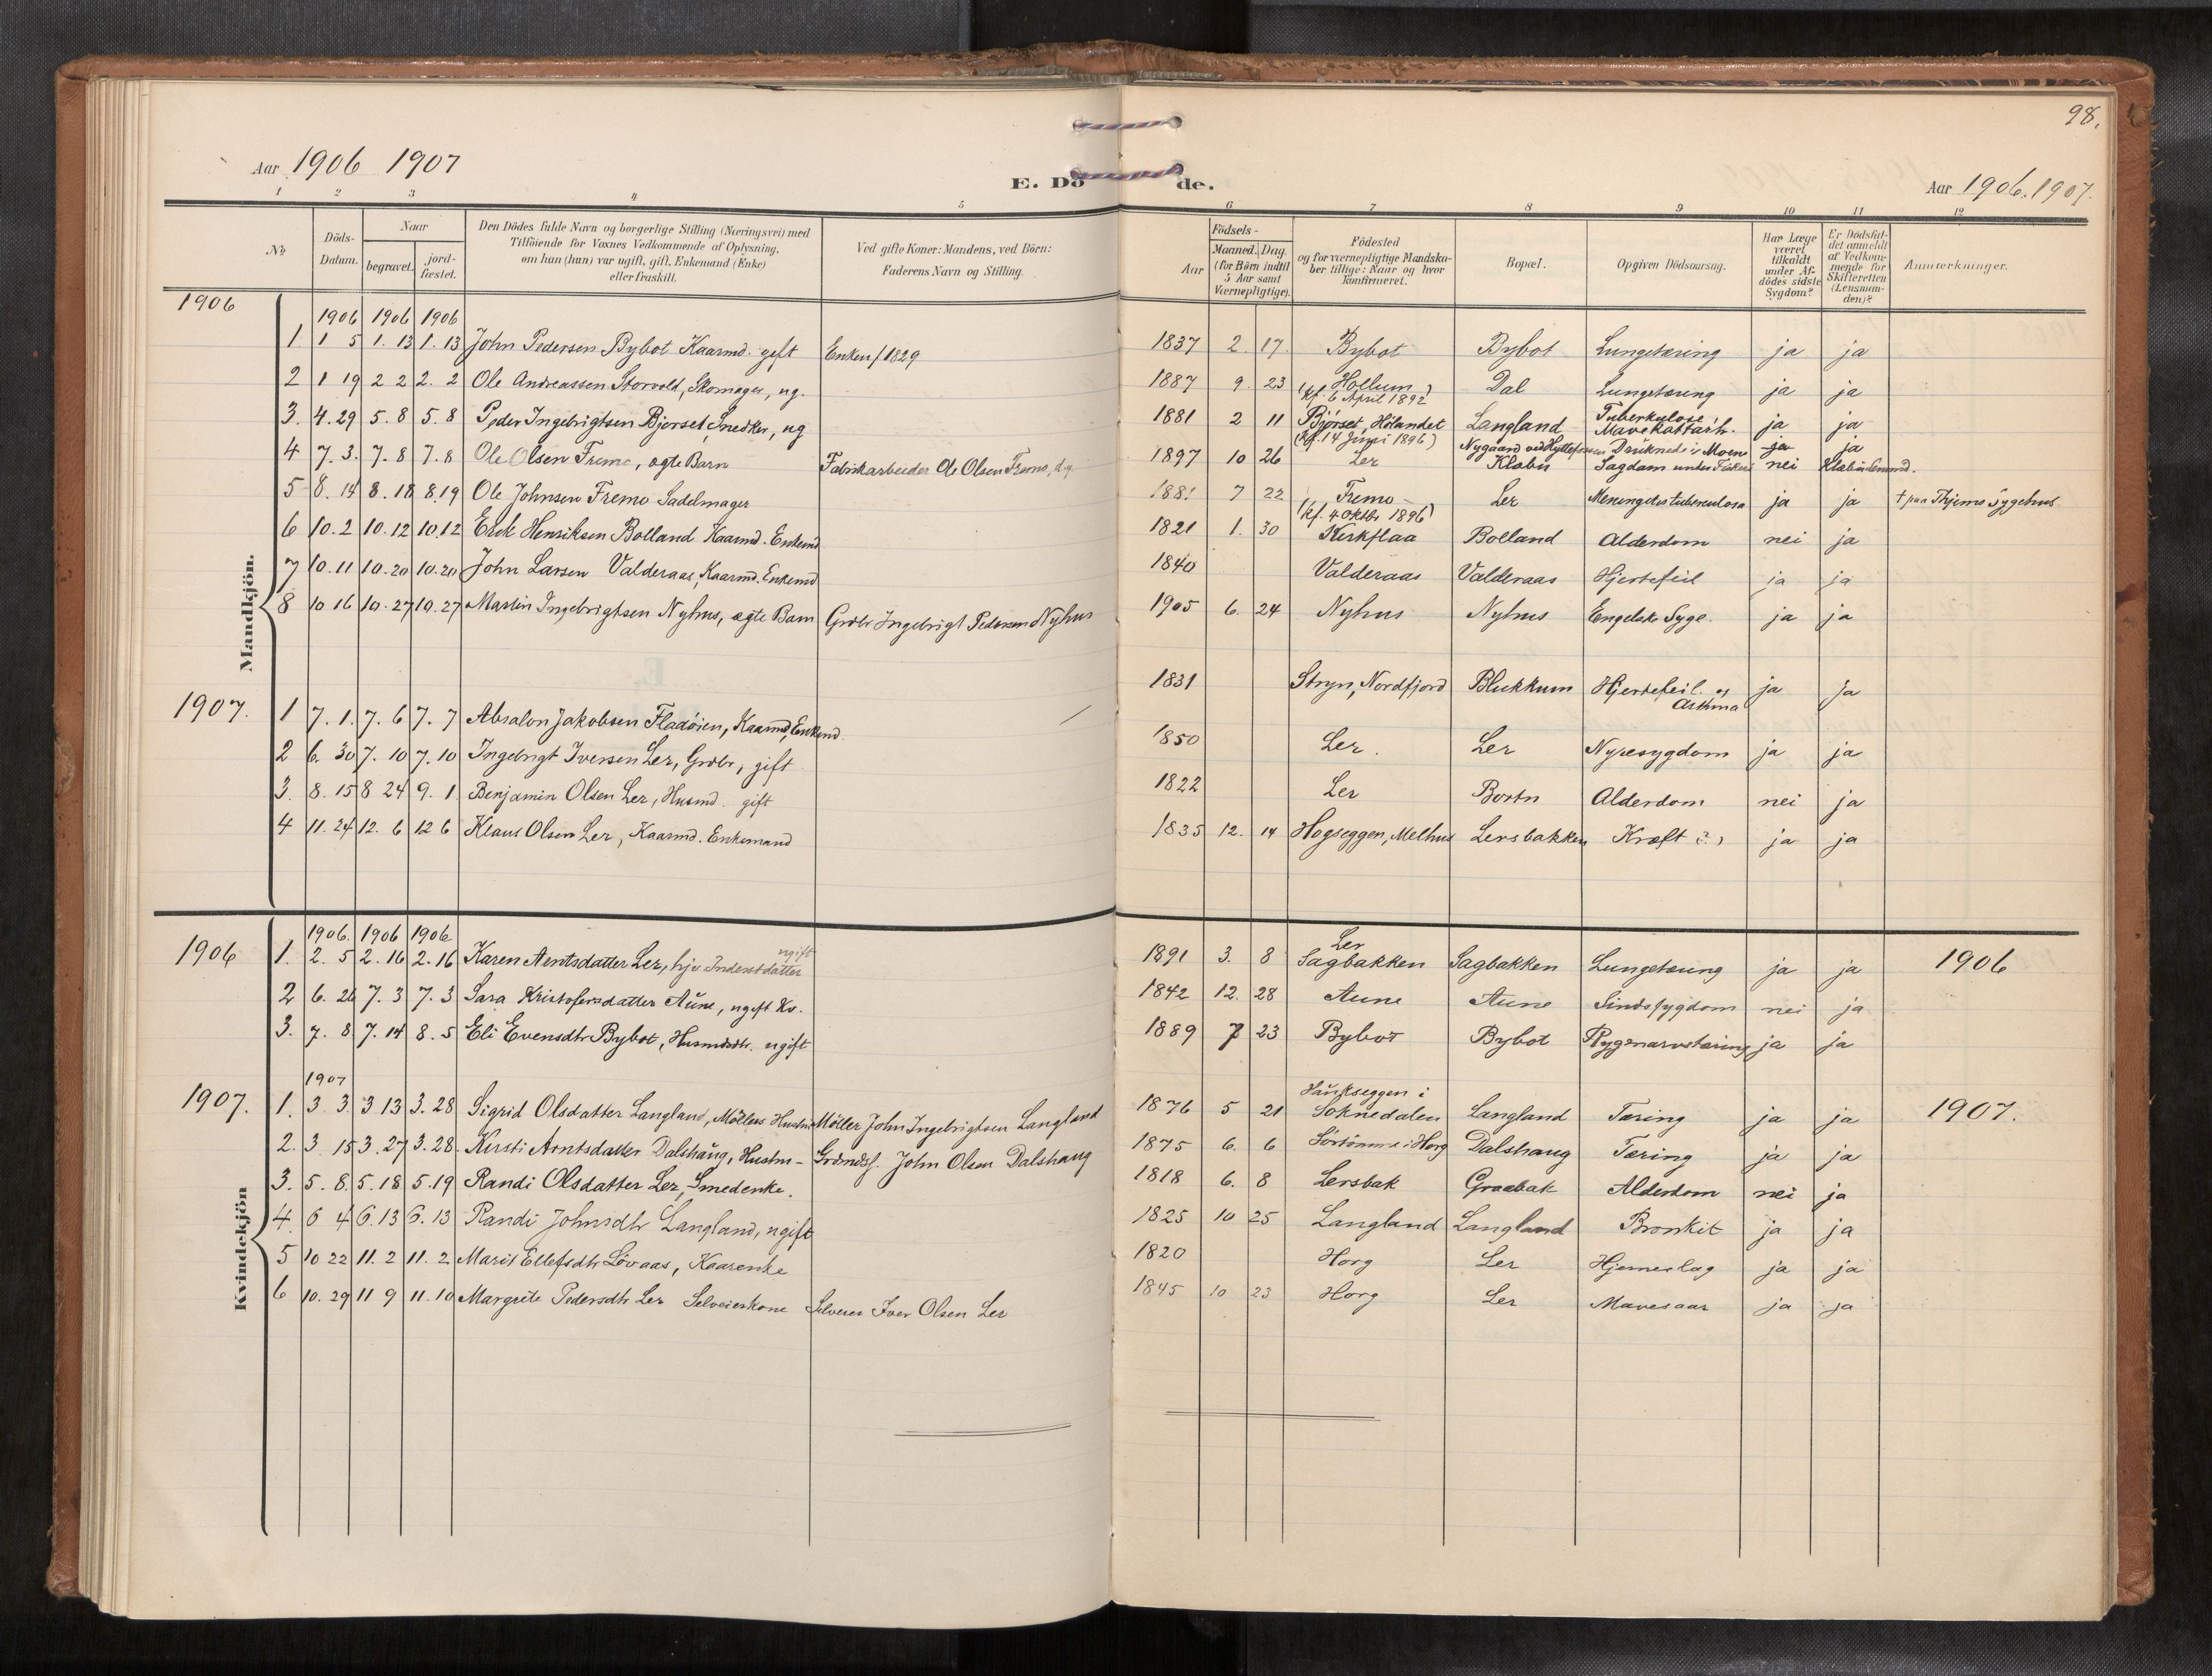 98.
Aar 1906 1907
E. Dö de.
Aar 1906. 1907.
1 2 3 4 5 6 7 8 9 10 11 12
No
Döds-Datum.
Naar
begravet.
jord-fæstet.
Den Dödes fulde Navn og borgerlige Stilling (Næringsvei) med
Tilföiende for Voxnes Vedkommende af Oplysning,
om han (hun) var ugift, gift, Enkemand (Enke)
eller fraskilt.
Ved gifte Koner: Mandens, ved Börn:
Faderens Navn og Stilling.
Födsels-
Aar
Maaned. Dag.
(for Börn indtil
5 Aar samt
Værnepligtige).
Födested
og for værnepligtige Mandska-
ber tillige: Naar og hvor
konfirmeret.
Bopæl.
Opgiven Dödsaarsag.
Har Læge
været
tilkaldt
under Af-
dödes sidste
Sygdom?
Er Dödsfal-
det anmeldt
af Vedkom-
mende for
Skifteretten
(Lensman-
den)?
Anmærkninger.
Mandkjön.
1906
1906 1906 1906
1. 1 5 1. 13 1. 13 John Pedersen Bybot Kaarmd. gift Enken f 1829 1837 2. 17. Bybot Bybot Lungetæring ja ja
2 1 19 2 2 2. 2 Ole Andreassen Storvold, Skomager, ug. 1887 9. 23 Hollum Dal Lungetæring ja ja
(kf. 6 April 1892)
3. 4. 29 5. 8 5. 8 Peder Ingebrigtsen Bjørset, Snedker, ug 1881 2 11 Bjørset, Hölandet Langland Tuberkulose i Mavekattarh. ja ja
(kf. 14 Juni 1896)
4 7. 3. 7. 8 7. 8 Ole Olsen Fremo, ægte Barn Fabrikarbeider Ole Olsen Fremo, 1897 10 26 Ler Nygaard ved Klæbu Druknede i Moens Sagdam under ja nei ja Klæbu Lensmd.
5 8. 14 8. 18 8. 19 Ole Johnsen Fremo Sadelmager 1881 7 22 Fremo Ler Meningitis tuberculosa ja ja † paa Thjems Sygehus
(kf. 4 Oktbr 1896)
6 10. 2 10. 12 10. 12 Erik Henriksen Bolland Kaarmd. Enkemd 1821 1. 30 Kirkflaa Bolland Alderdom nei ja
7 10. 11 10. 20 10. 20 John Larsen Valderaas, Kaarmd. Enkemd 1840 Valderaas Valderaas Hjertefeil ja ja
8 10 16 10. 27 10. 27 Martin Ingebrigtsen Nyhus, ægte Barn Grdbr Ingebrigt Pedersen Nyhus 1905 6. 24 Nyhus Nyhus Engelsk Syge. ja ja
1907. 1 7. 1. 7. 6 7. 7 Absalon Jakobsen Fladöien, Kaarmd, Enkemd 1831 Stryn, Nordfjord Blukkum Hjertefeil og Asthma ja ja
2 6. 30 7. 10 7. 10 Ingebrigt Iversen Ler, Grdbr, gift 1850 Ler. Ler Nyresygdom ja ja
3. 8. 15 8 24 9. 1 Benjamin Olsen Ler, Husmd. gift 1822 Ler Bortn Alderdom nei ja
4 11. 24 12. 6 12 6 Klaus Olsen Ler, Kaarmd. Enkemand 1835 12. 14 Hogseggen, Melhus Lersbakken Kræft (?) ja ja
Kvindekjön
1906 1906. 1906 1906
1. 2. 5 2. 16 2. 16 Karen Arntsdatter Ler, hjv. Inderstdatter ugift 1891 3. 8 Ler Sagbakken Sagbakken Lungetæring ja ja 1906
2 6. 26 7. 3 7. 3 Sara Kristofersdatter Aune, ugift Kv. 1842 12. 28 Aune Aune Sindssygdom nei ja
3. 7. 8 7. 14 8. 5 Eli Evensdtr Bybot, Husmdsdtr. ugift 1889 7 23 Bybot Bybot Rygmarvstæring ja ja
1907
1907. 1. 3 3. 3 13 3. 28 Sigrid Olsdatter Langland, Möllers Hustru Möller John Ingebrigtsen Langland 1876 5 21 Haukseggen i Soknedalen Langland Tæring ja ja 1907.
2. 3 15 3. 27 3. 28. Kirsti Arntsdatter Dalshaug, Hustru - Grdmdsf. John Olsen Dalshaug 1875 6. 6 i Horg Dalshaug Tæring ja ja
3. 5. 8. 5. 18 5. 19 Randi Olsdatter Ler, Smedenke. 1818 6. 8 Lersbak Graabak Alderdom nei ja
4. 6 4 6. 13 6. 13 Randi Johnsdtr Langland, ugift 1825 10 25 Langland Langland Bronkit ja ja
5 10 22 11. 2 11. 2 Marit Ellefsdtr Lövaas, Kaarenke 1820 Horg Ler Hjerneslag ja ja
6 10. 29 11 9 11. 10 Margrete Pedersdtr Ler Selveierkone Selveier Iver Olsen Ler 1845 10 23 Horg Ler Mavesaar ja ja